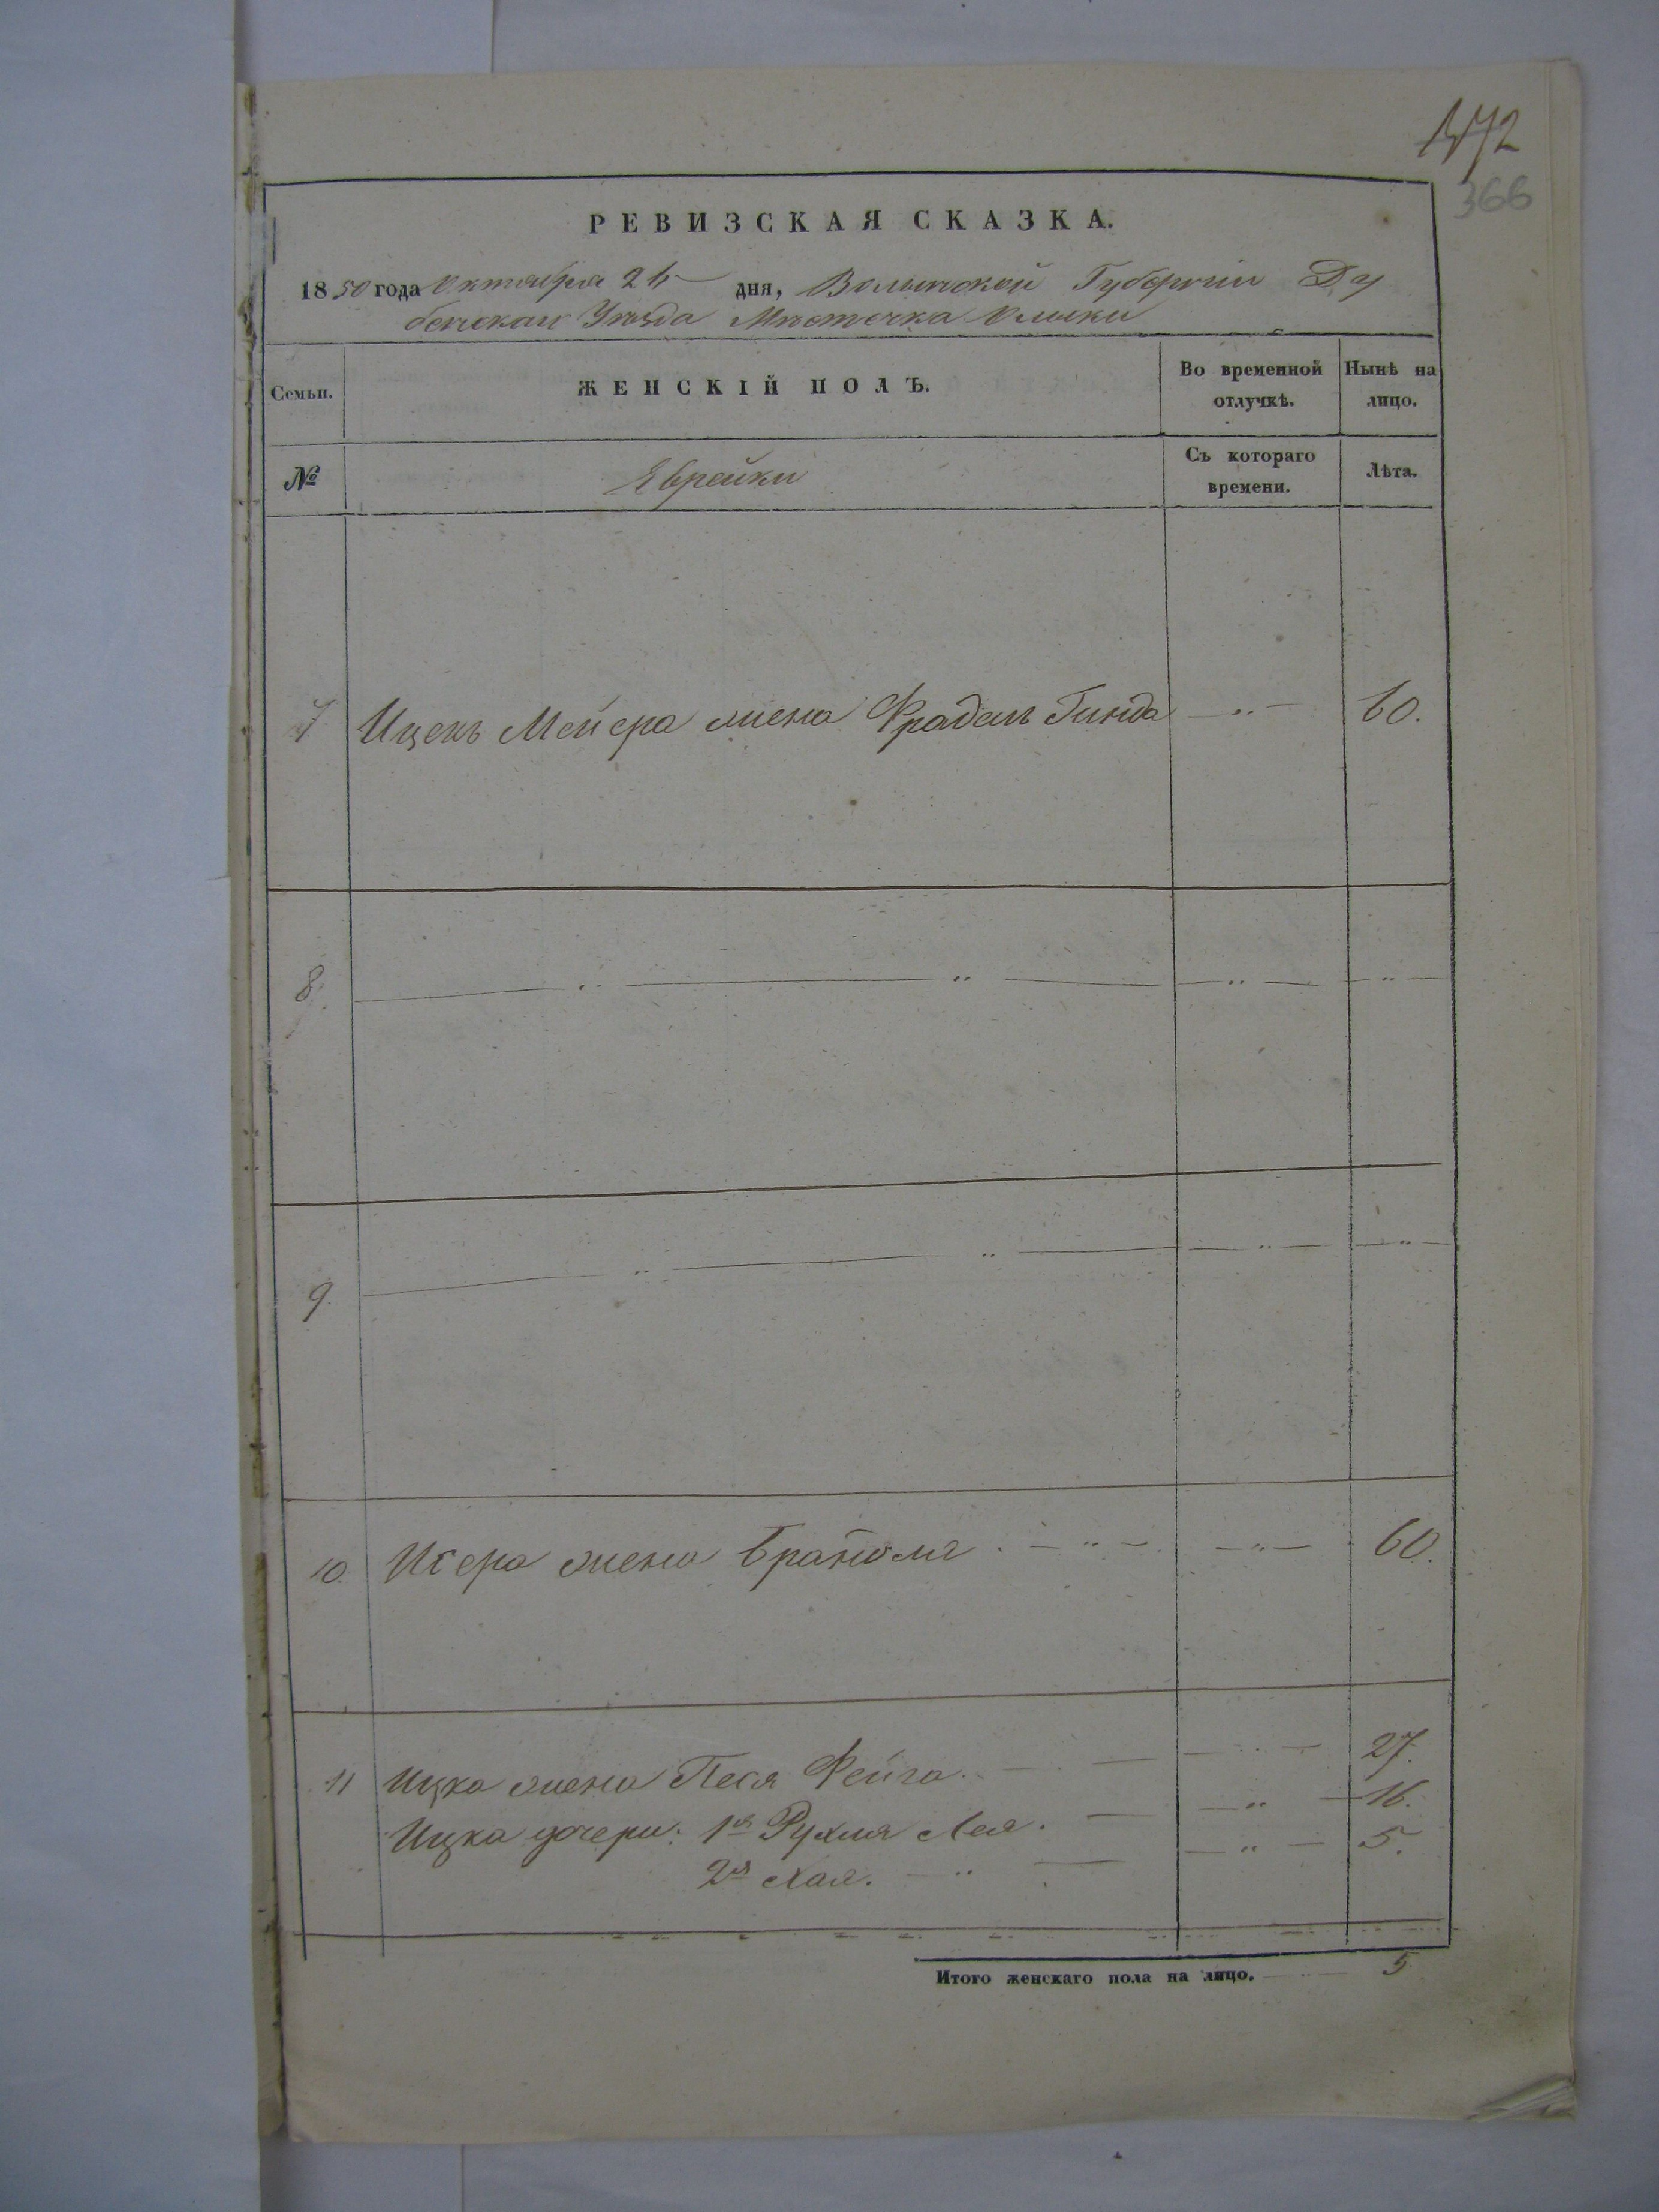 172
366
РЕВИЗСКАЯ СКАЗКА.
1850 года Октября 26 дня, Волынской Губерніи Ду
бенскаго Уѣзда Мѣстечка Олыки
Семьи.
ЖЕНСКІЙ ПОЛЪ.
Во временной отлучкѣ.
Нынѣ на лицо.
№
Еврейки
Съ котораго времени.
Лѣта.
7 Ицекъ Мейера жена Фрадель Гинда — „ — 60.
8 — „ — „ — — „ — — „ —
9. — „ — „ — — „ — — „ —
10. жена — „ — — „ — 60.
11 Ицка жена Песя Фейга. — — „ — 27.
Ицка дочери: 1я Рухля Лея. — — „ — 16.
2я Хая. — „ — — „ — 5.
Итого женскаго пола на лицо. 5